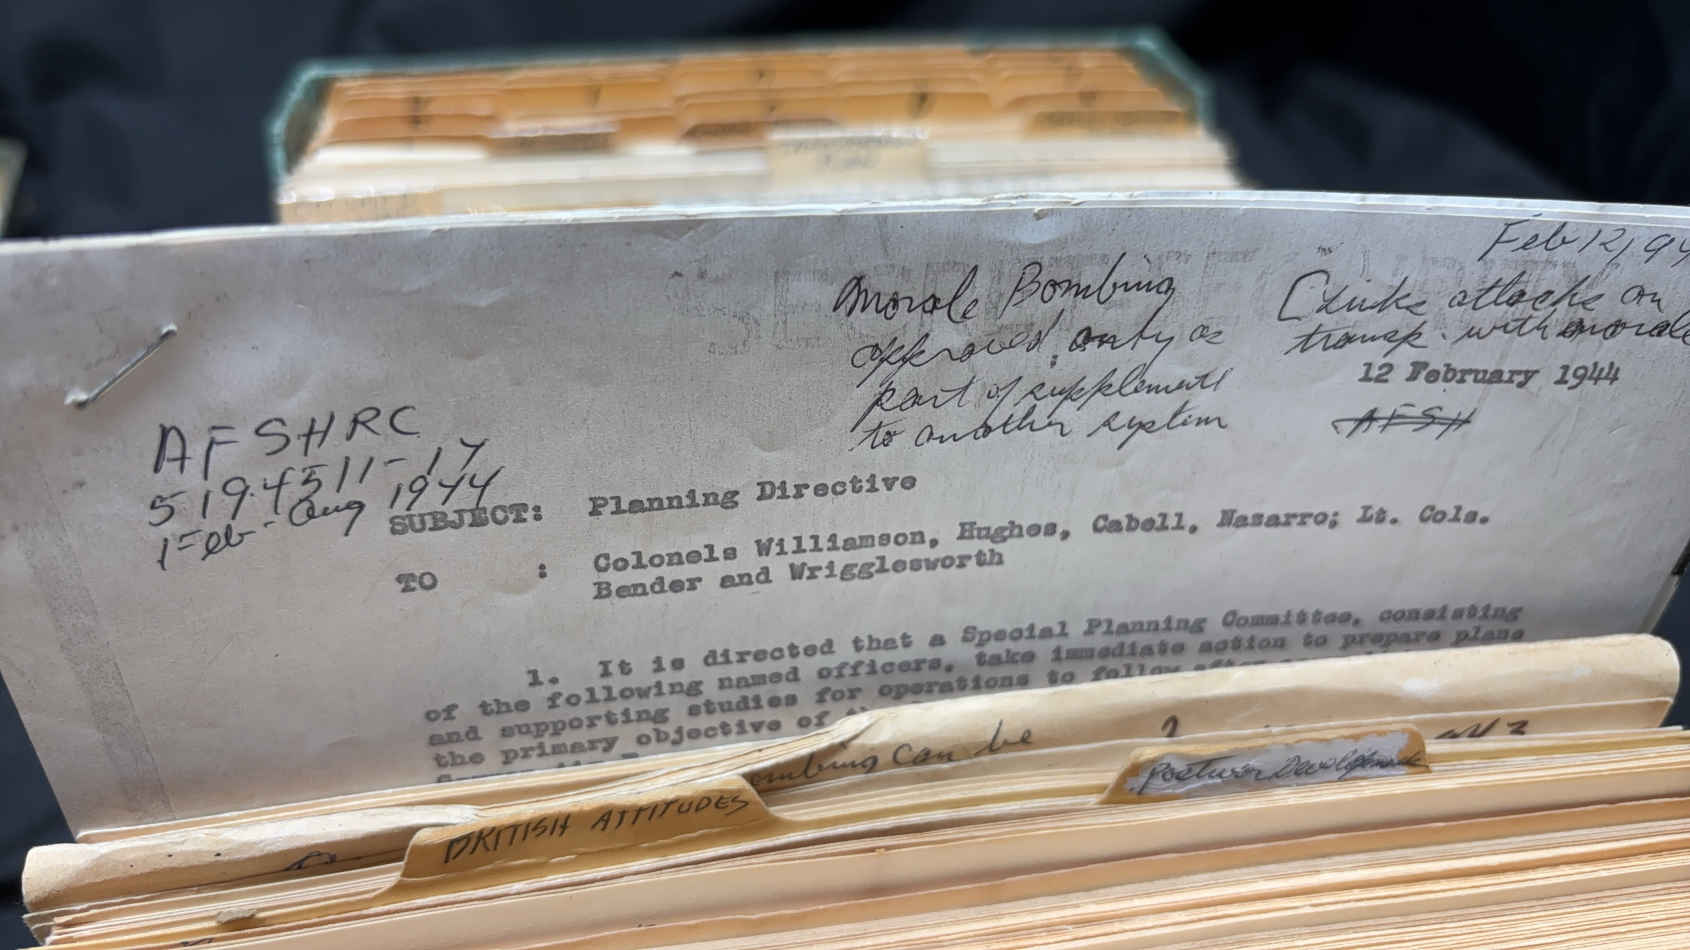 Feb 12, 94
Morale Bombing
approved only as
part of supplement
to another system
[Links attacks on
transp. with morale
12 February 1944
AFSH
AFSHRC
519.4511-17
Feb - Aug 1944
SUBJECT: Planning Directive
TO : Colonels Williamson, Hughes, Cabell, Nazarro; Lt. Cols.
Bender and Wrigglesworth
1. It is directed that a Special Planning Committee, consisting
of the following named officers, take immediate action to prepare plans
and supporting studies for operations to follow after
the primary objective of
ombing can be
BRITISH ATTITUDES
Postwar Developments